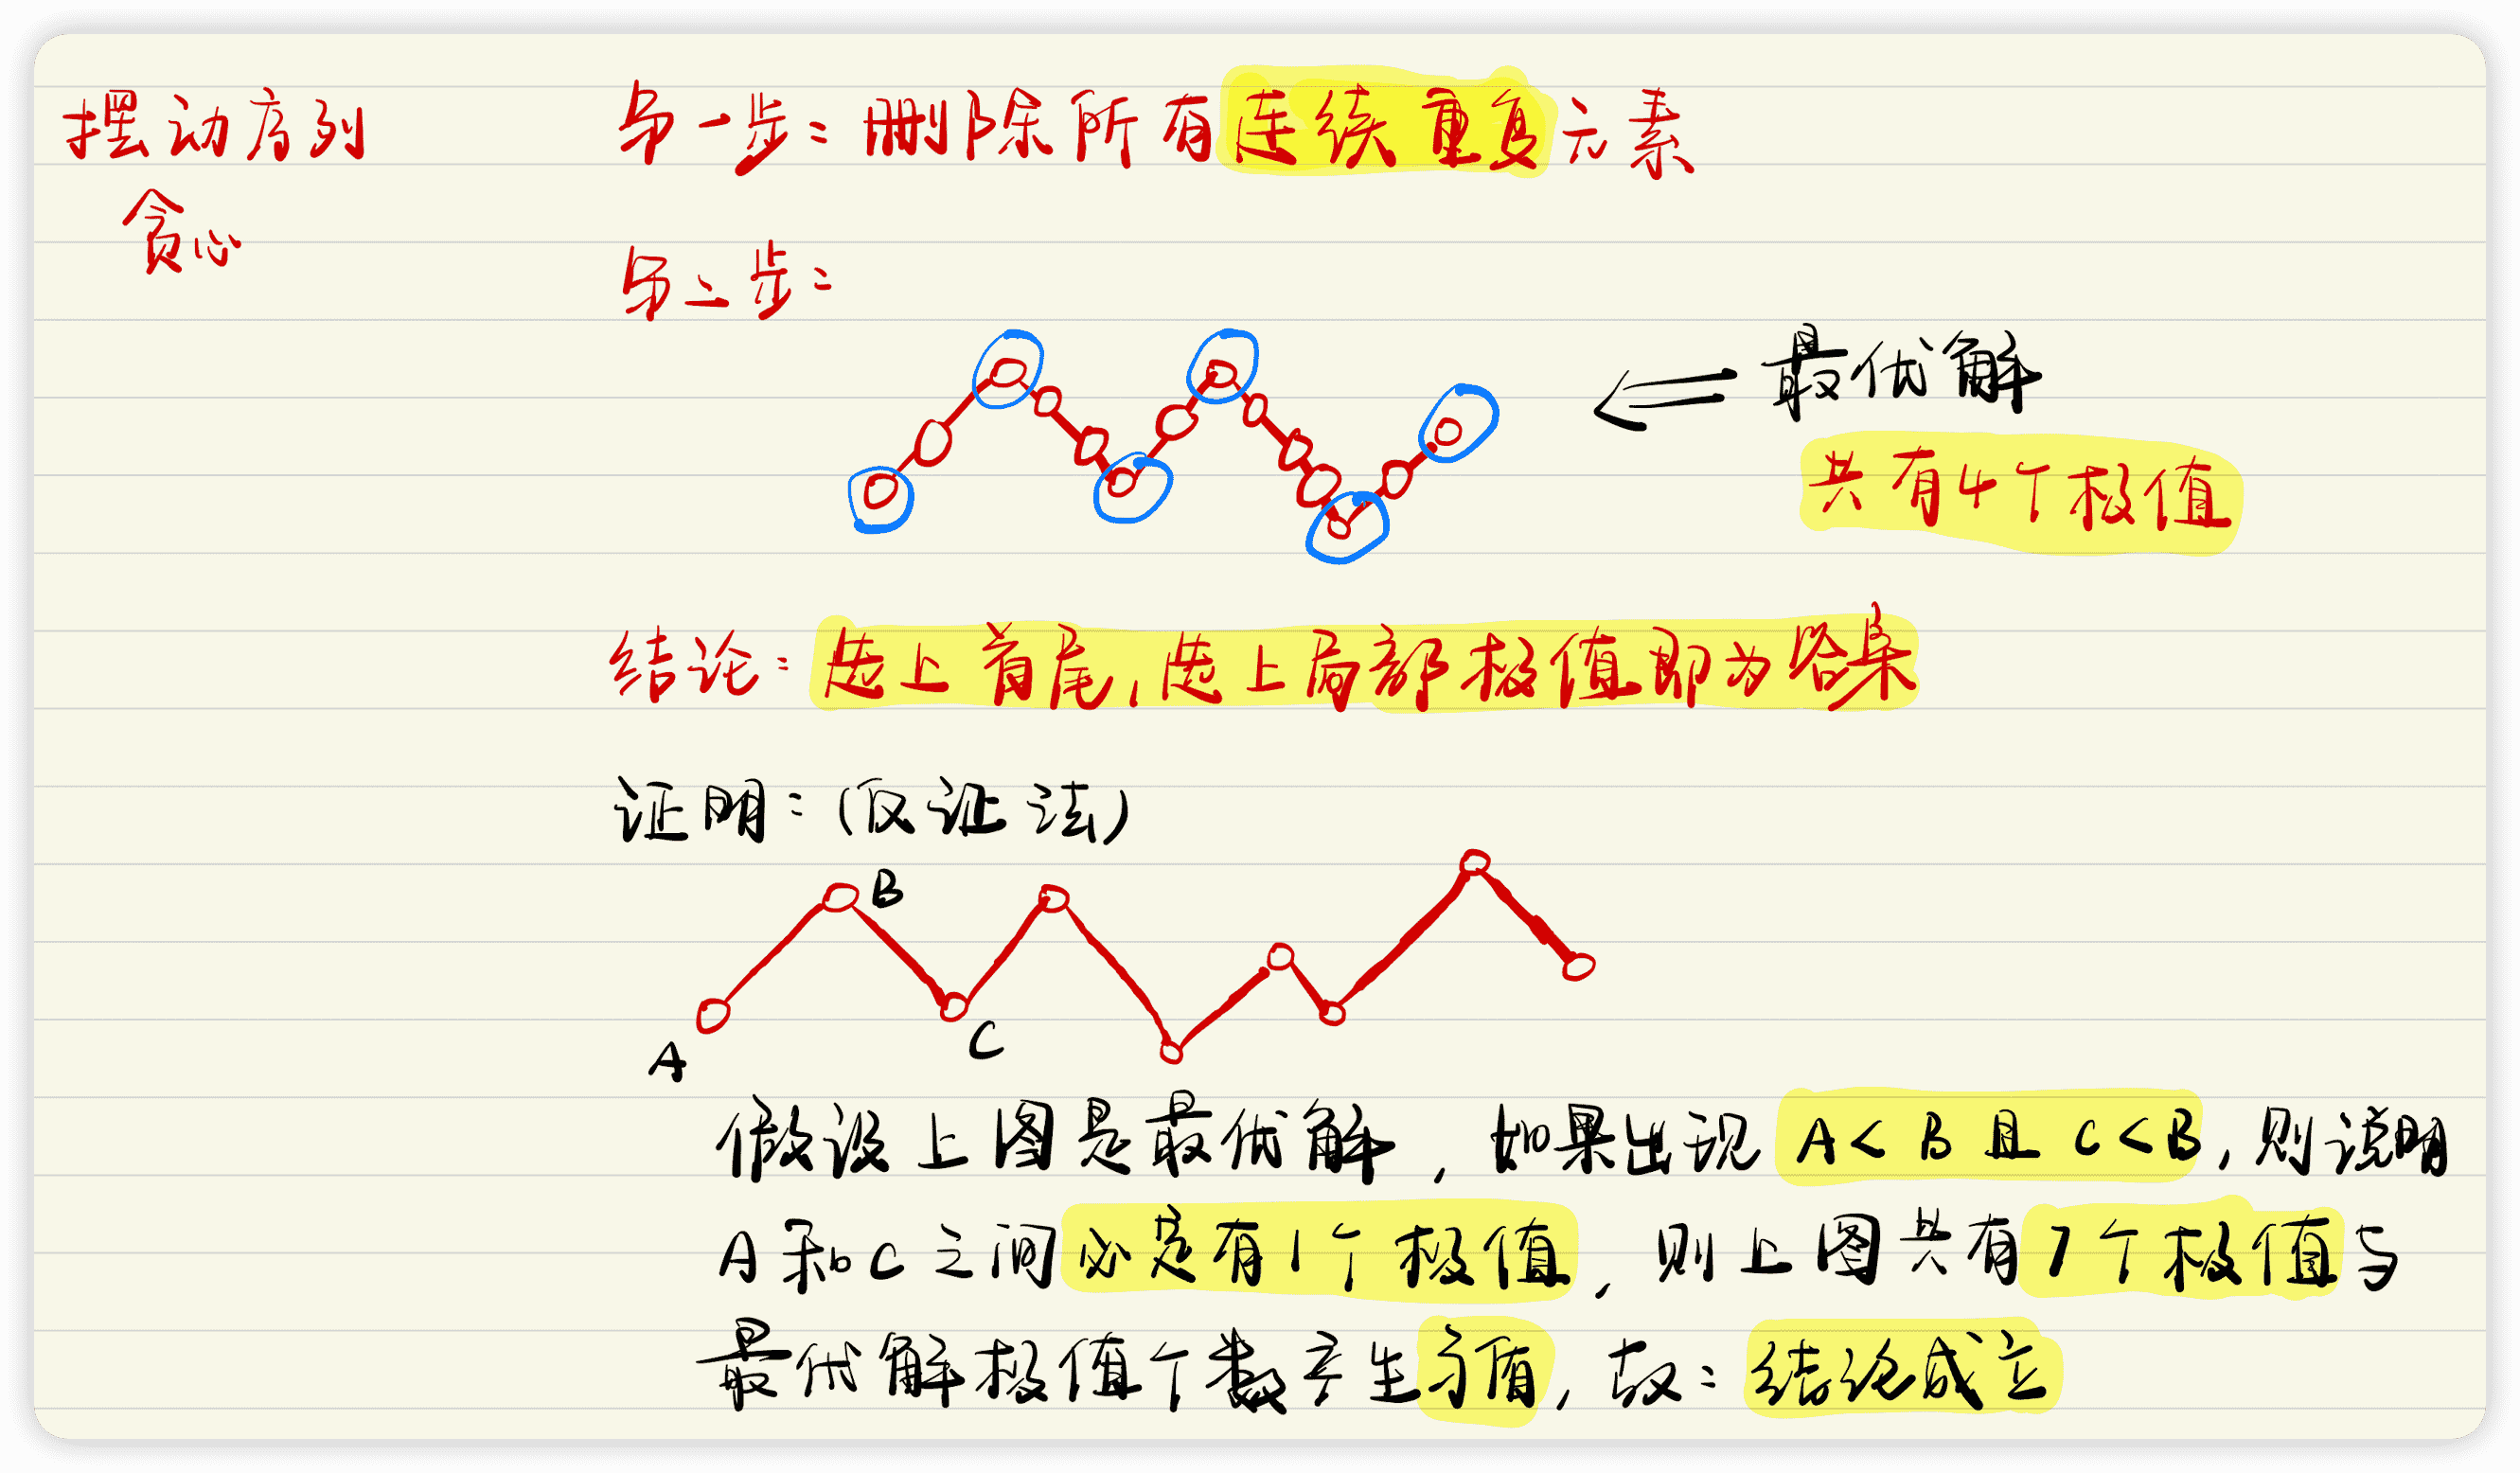 摆动序列
贪心
第一步：删除所有连续重复元素
第二步：
最优解
共有4个极值
结论：选上首尾，选上局部极值即为答案
证明：（反证法）
B
C
A
假设上图是最优解，如果出现 A < B 且 C < B，则说明
A 和 C 之间必定有1个极值，则上图共有7个极值与
最优解极值个数产生矛盾，故：结论成立